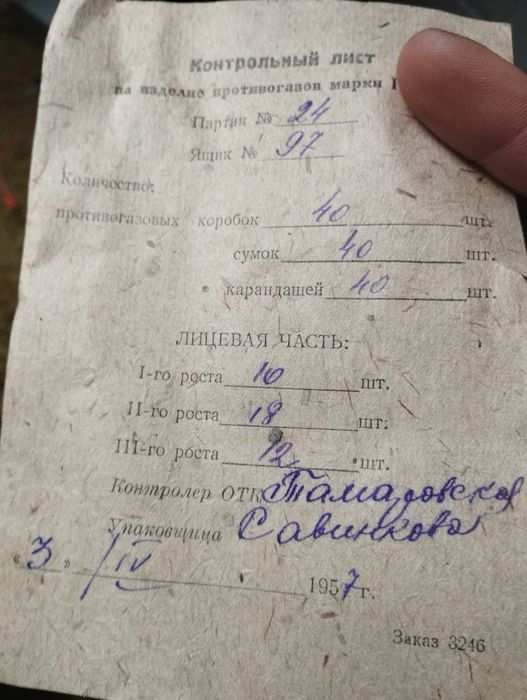 Контрольный лист
на изделие противогазов марки
Партия № 24
Ящик № 97
Количество:
противогазовых коробок 40 шт.
сумок 40 шт.
карандашей 40 шт.
ЛИЦЕВАЯ ЧАСТЬ:
I-го роста 10 шт.
II-го роста 18 шт.
III-го роста 12 шт.
Контролер ОТК Тамаровская
Упаковщица Савинкова
"3" IV 1957 г.
Заказ 3246